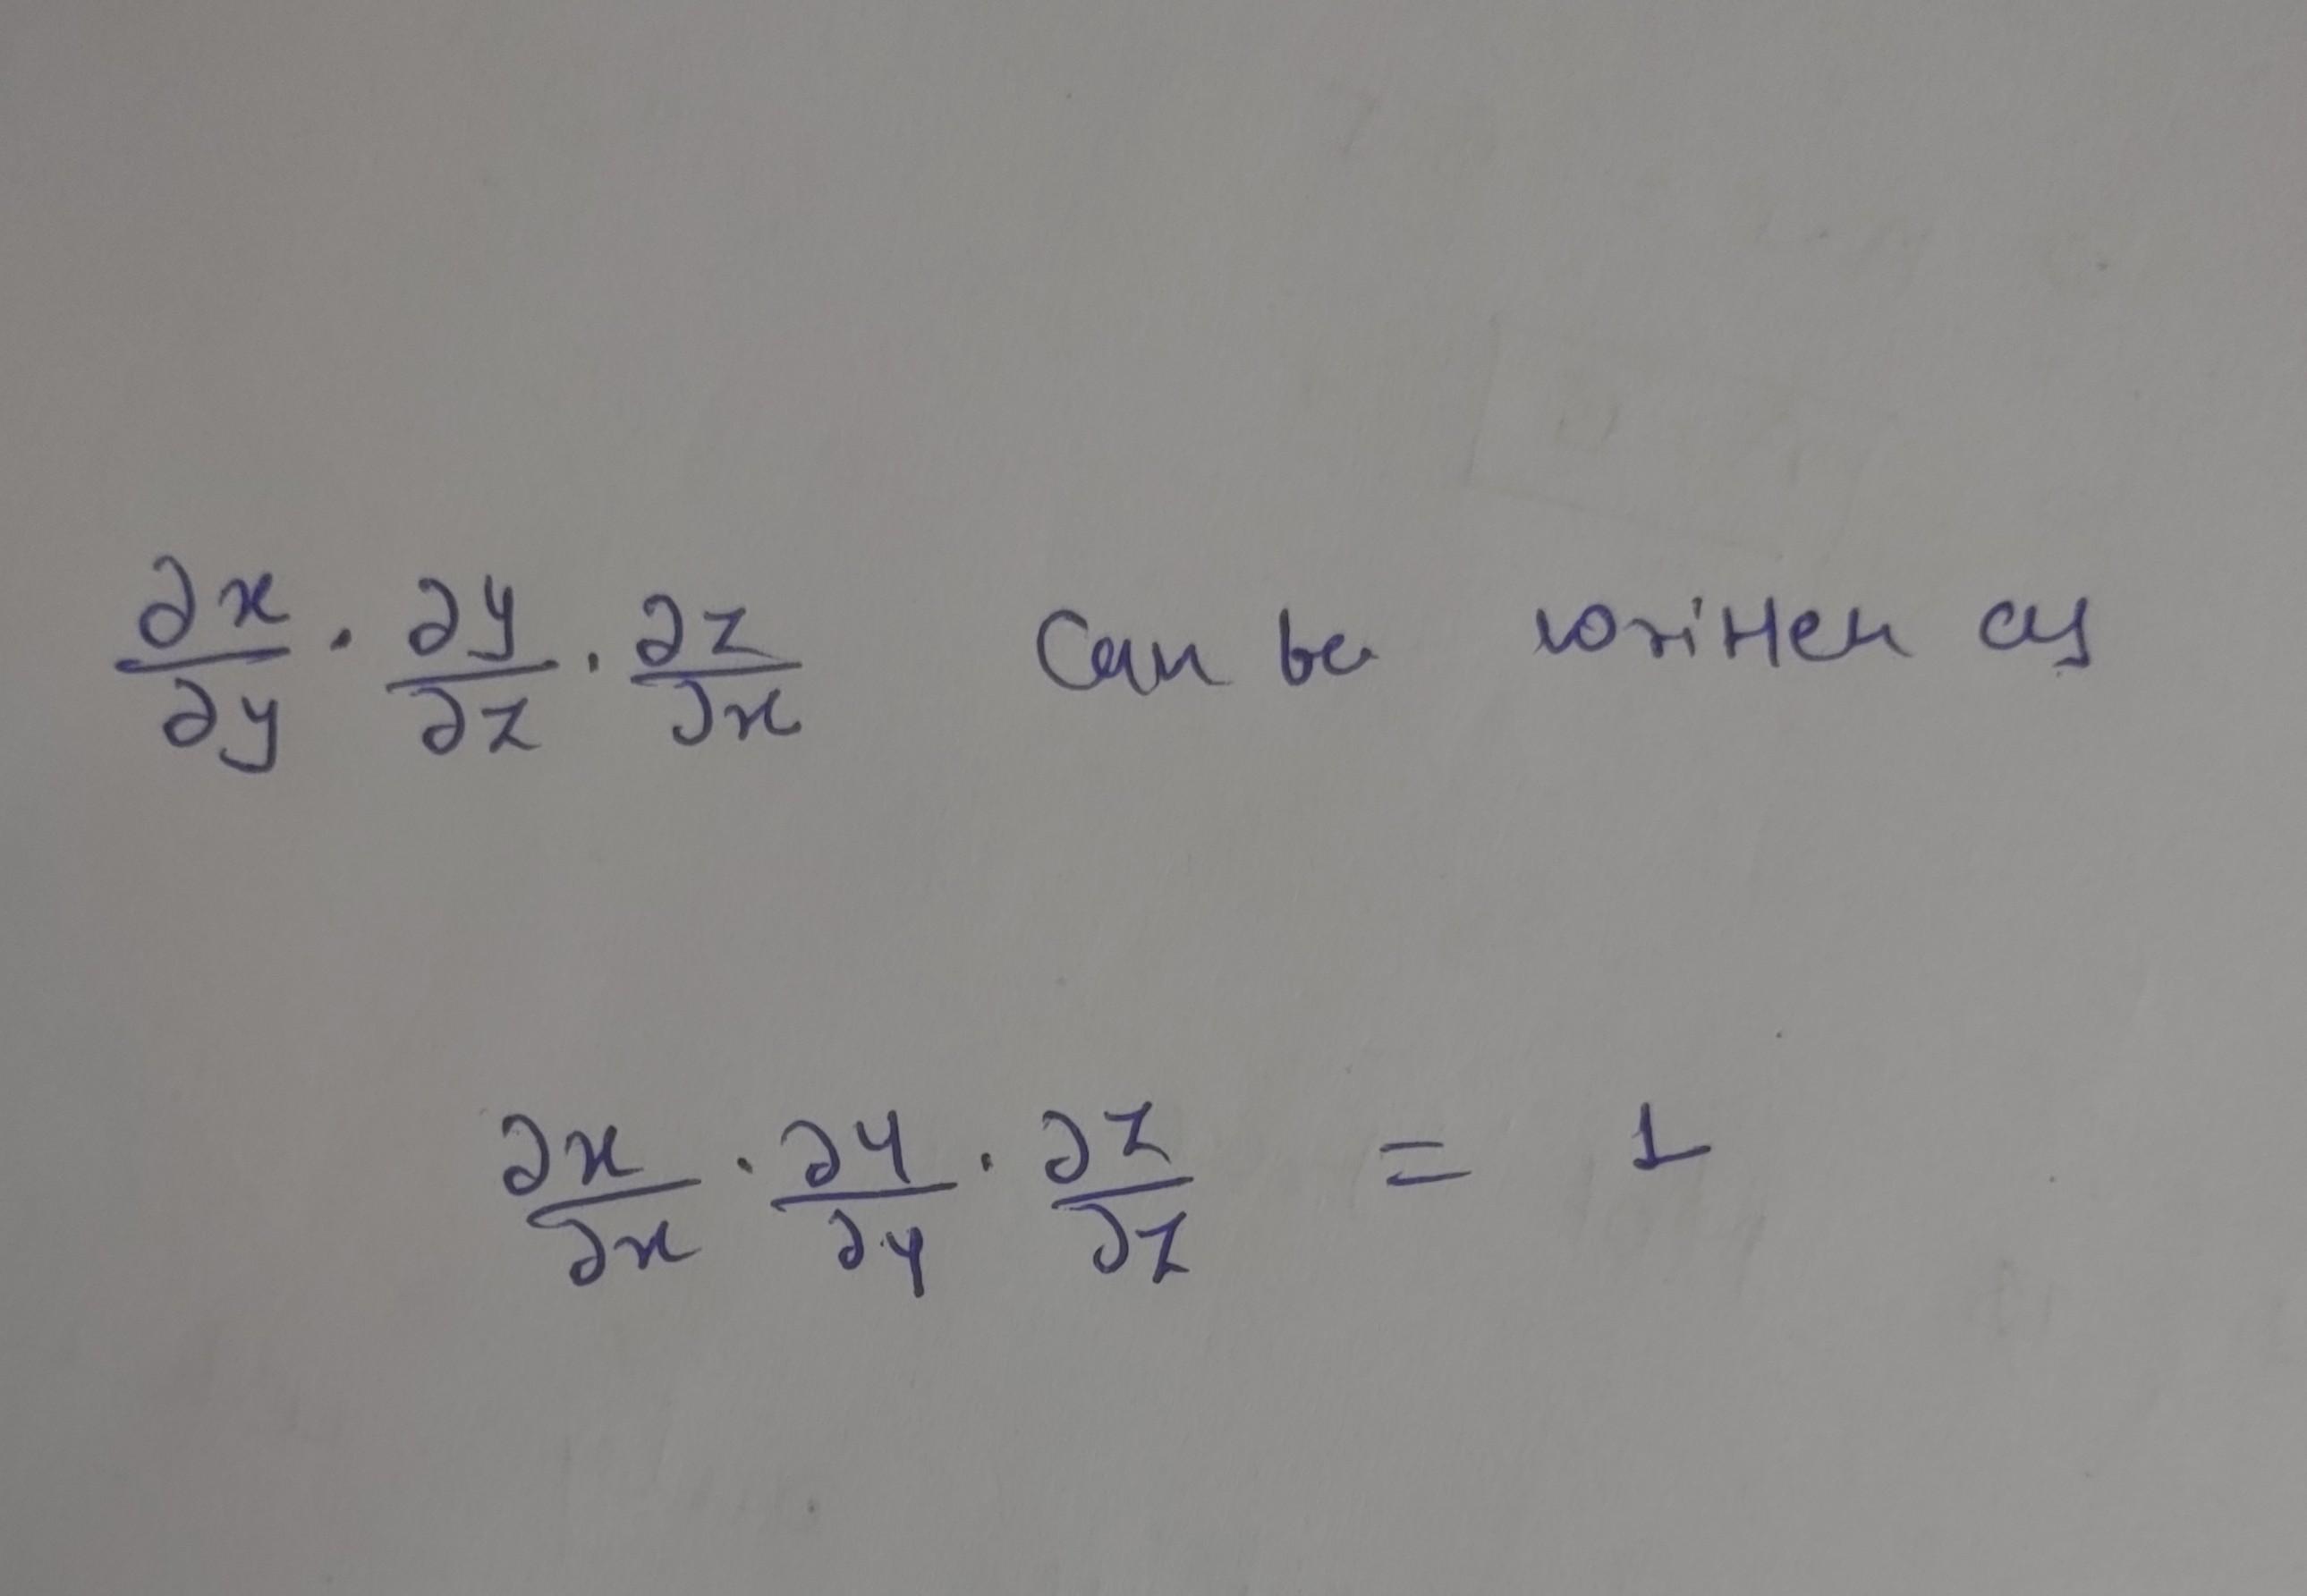 ∂x/∂y · ∂y/∂z · ∂z/∂x Can be written as
∂x/∂x · ∂y/∂y · ∂z/∂z = 1